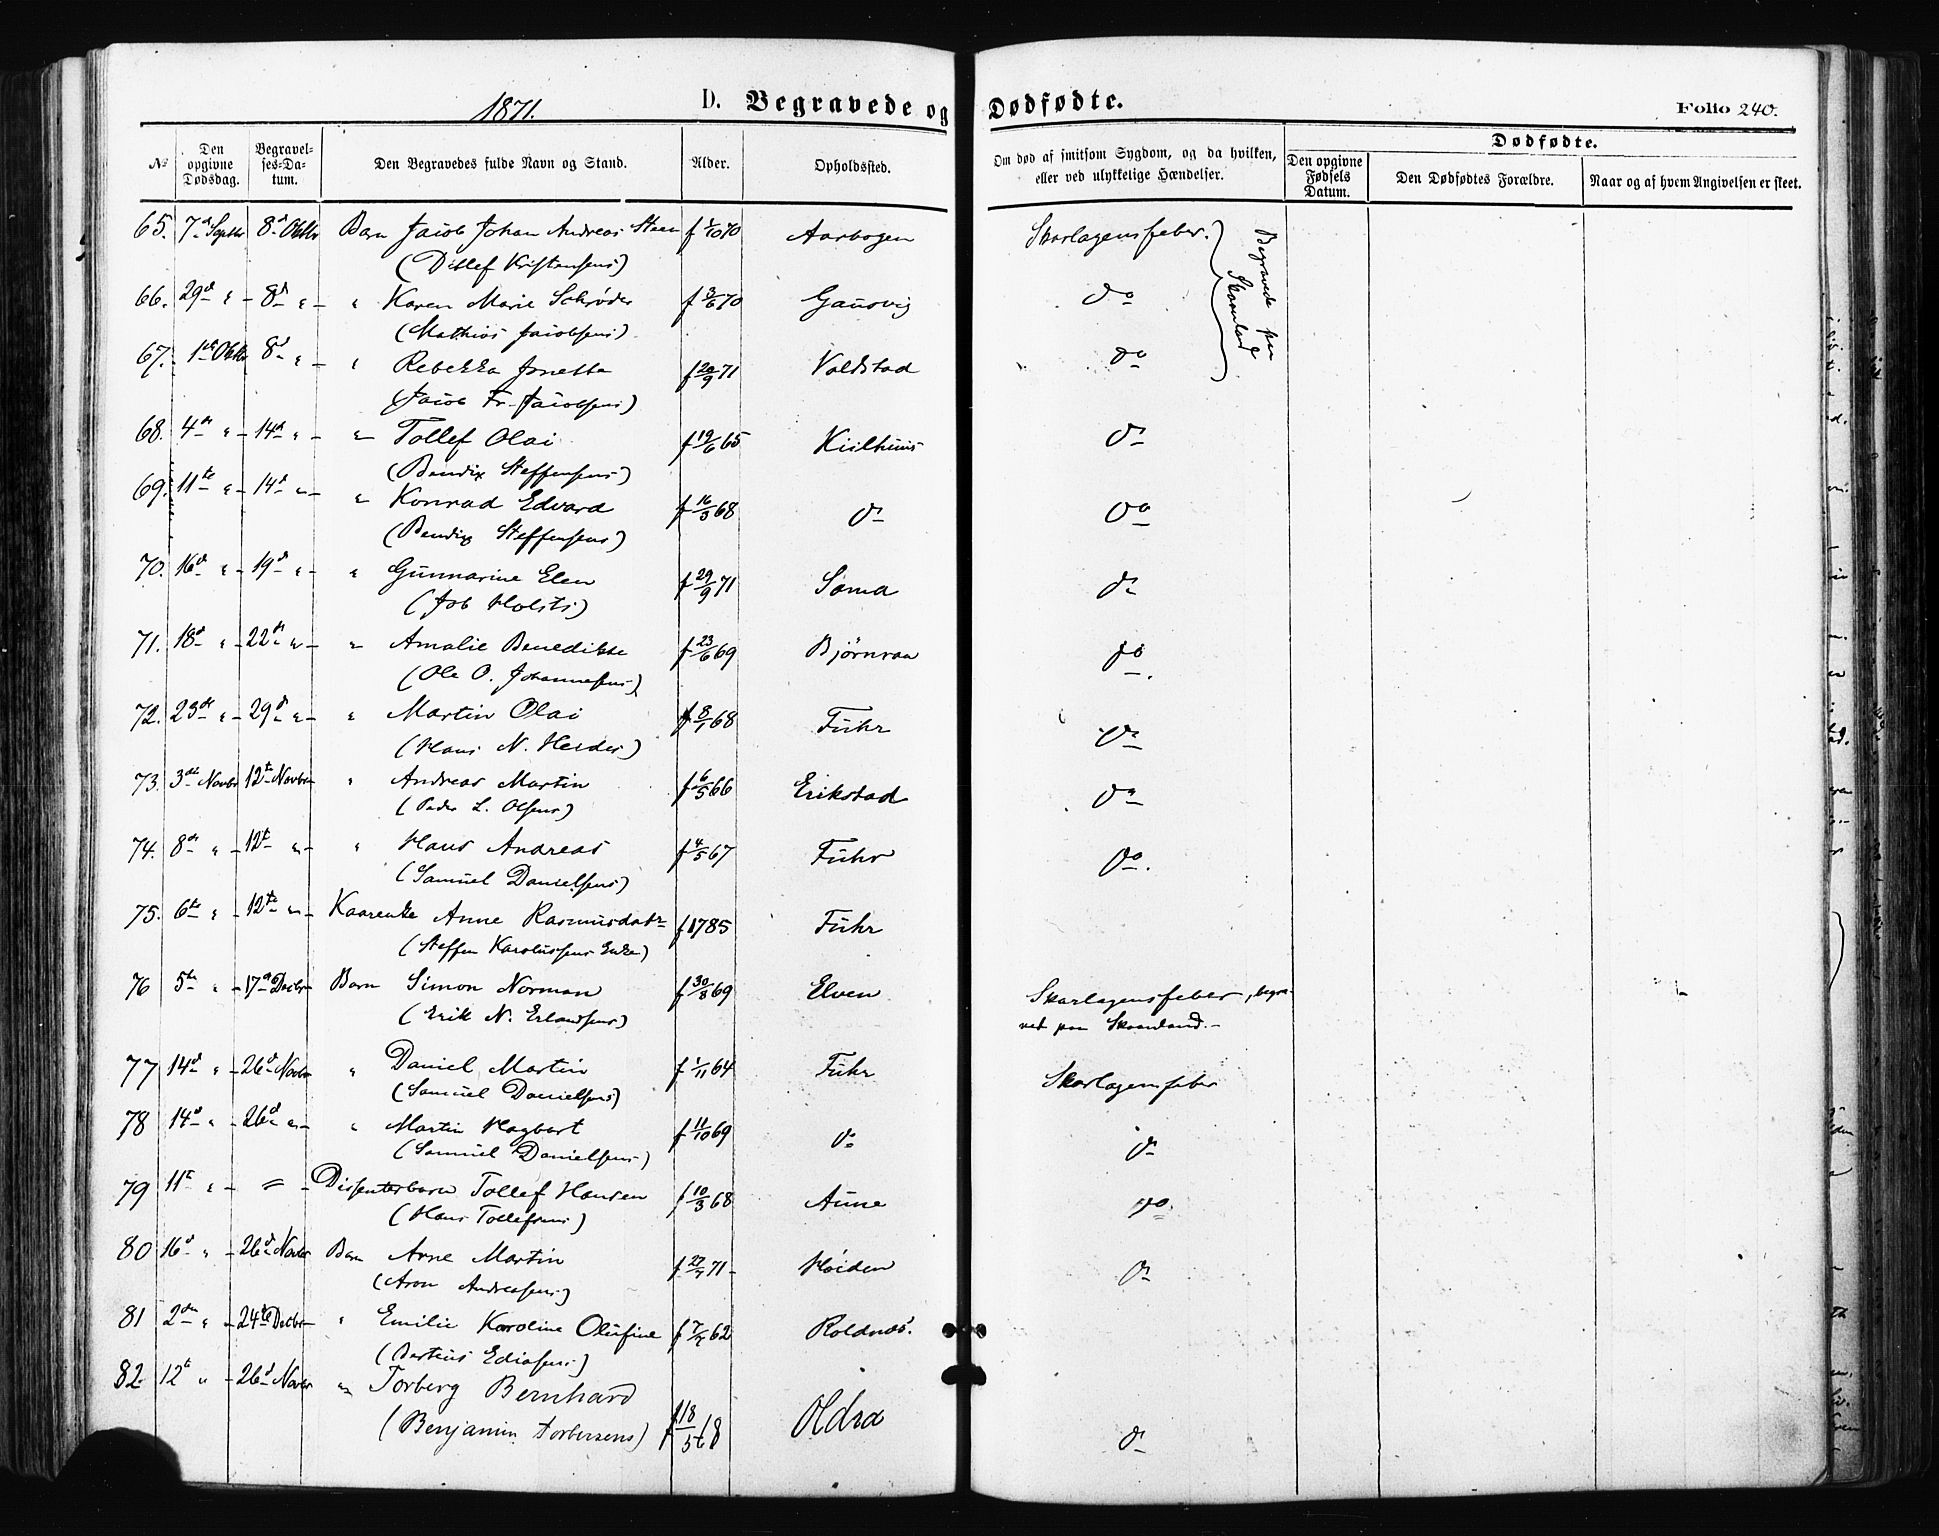 1871. D. Begravede og Dødfødte. Folio 240.
№ Den opgivne Dødsdag. Begravelses-Datum. Den Begravedes fulde Navn og Stand. Alder. Opholdssted. Om død af smitsom Sygdom, og da hvilken, eller ved ulykkelige Hændelser. Dødfødte.
Den opgivne Fødsels Datum. Den Dødfødtes Forældre. Naar og af hvem Angivelsen er skeet.
65. 7d Septbr 8d Octbr Barn Jacob Johan Andreas Steen f 1/10 70 Aarbogen Skarlagensfeber. Begravede paa Skaanland
(Ditlef Kristensens)
66. 29d " 8d " " Karen Marie Schrøder f 3/6 70 Gausvig do
(Mathias Jacobsens)
67. 1ste Octbr 8d " " Rebekka Jonetta f 20/9 71 Voldstad do
(Jacob Fr. Jacobsens)
68. 4de " 14d " " Tollef Olai f 19/6 65 Kiilhuus do
(Bendix Steffensens)
69. 11te " 14d " " Konrad Edvard f 16/3 68 do do
(Bendix Steffensens)
70. 16d " 19d " " Gunnarine Elen f 29/9 71 Sama do
(Job Holsts)
71. 18d " 22de " " Amalie Benedikte f 23/6 69 Bjørnraa do
(Ole O. Johannesens)
72. 23de " 29d " " Martin Olai f 8/1 68 Fuhr do
(Hans N. Heides)
73. 3die Novbr 12te Novber " Andreas Martin f 6/5 66 Erikstad do
(Peder L. Olsens)
74. 8de " 12te " " Hans Andreas f 4/5 67 Fuhr do
(Samuel Danielsens)
75. 6te " 12te " Kaarenke Anne Rasmusdatr f 1785 Fuhr
(Steffen Karolussens Enke)
76 5te " 17d Decbr Barn Simon Norman f 30/8 69 Elven Skarlagensfeber, begra-
(Erik N. Erlandsens) vet paa Skaanland.
77 14d " 26d Novbr " Daniel Martin f 1/11 64 Fuhr Skarlagensfeber
(Samuel Danielsens)
78 14d " 26d " " Martin Hagbart f 11/10 69 do do
(Samuel Danielsens)
79 11te " = Dissenterbarn Tollef Hansen f 10/3 68 Aune do
(Hans Tollefsens)
80 16d " 26d Novbr Barn Arne Martin f 27/7 71 Høiden do
(Aron Andreasens)
81 2den " 24de Decbr " Emilie Karoline Olufine f 7/7 62 Roldnæs.
(Bertius Ediasens)
82 12te " 26d Novbr " Torberg Bernhard f 18/5 68 Oldra do
(Benjamin Torbersens)